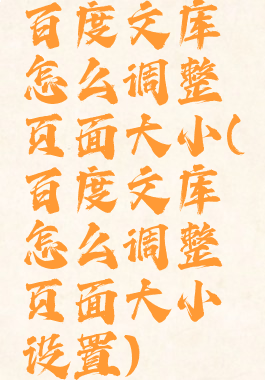 百度文库
怎么调整
页面大小(
百度文库
怎么调整
页面大小
设置)